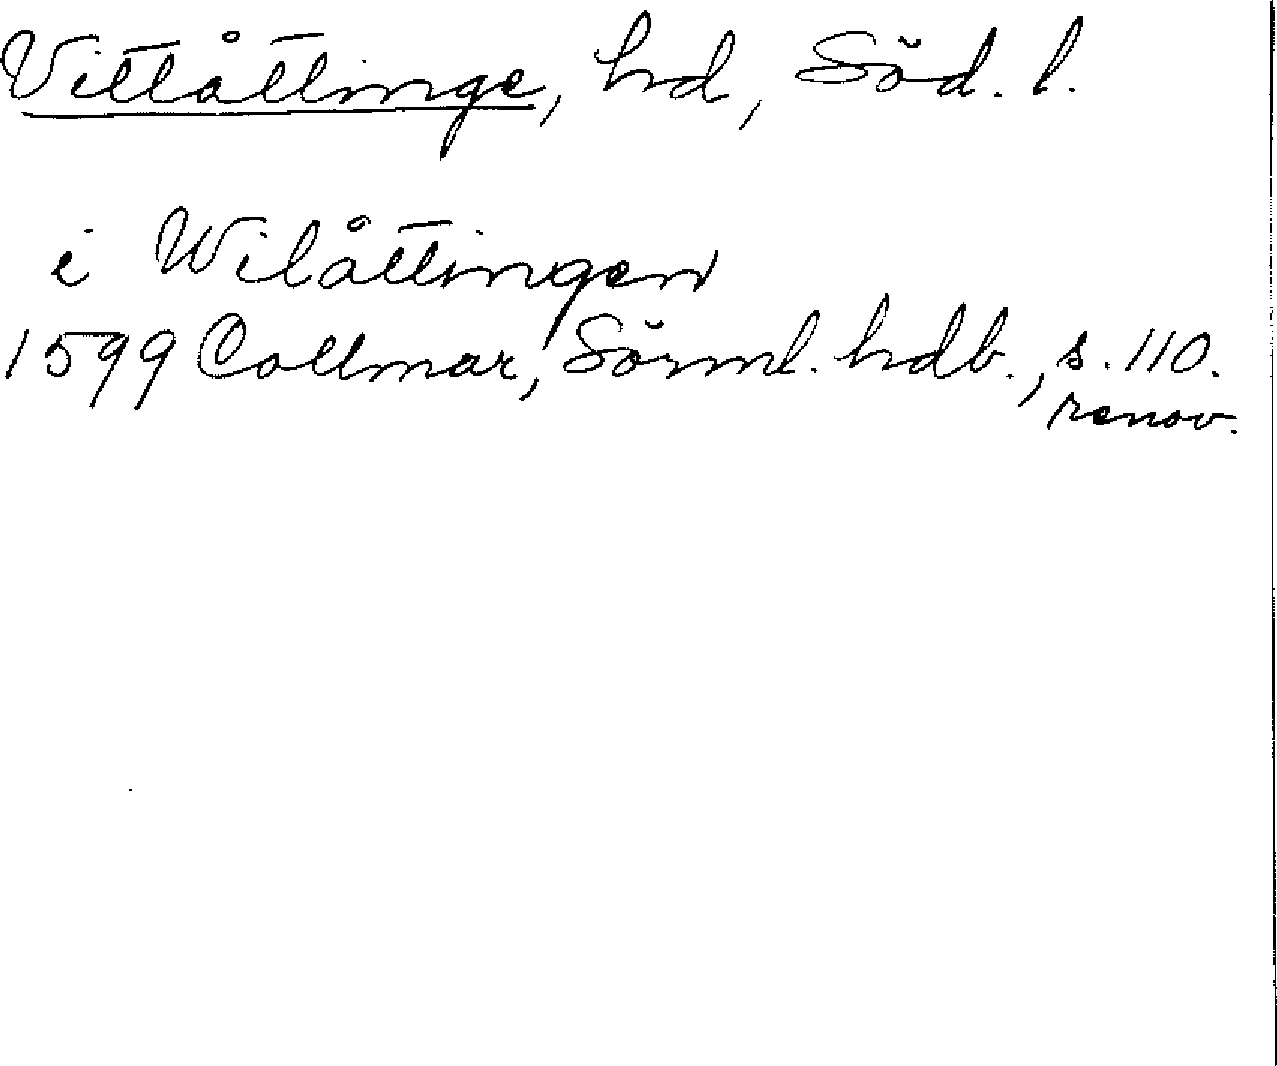 Villåttinge, hd, Söd. l.
i Wilåttingen
1599 Collmar, Sörml. hdb., s. 110.
renov.